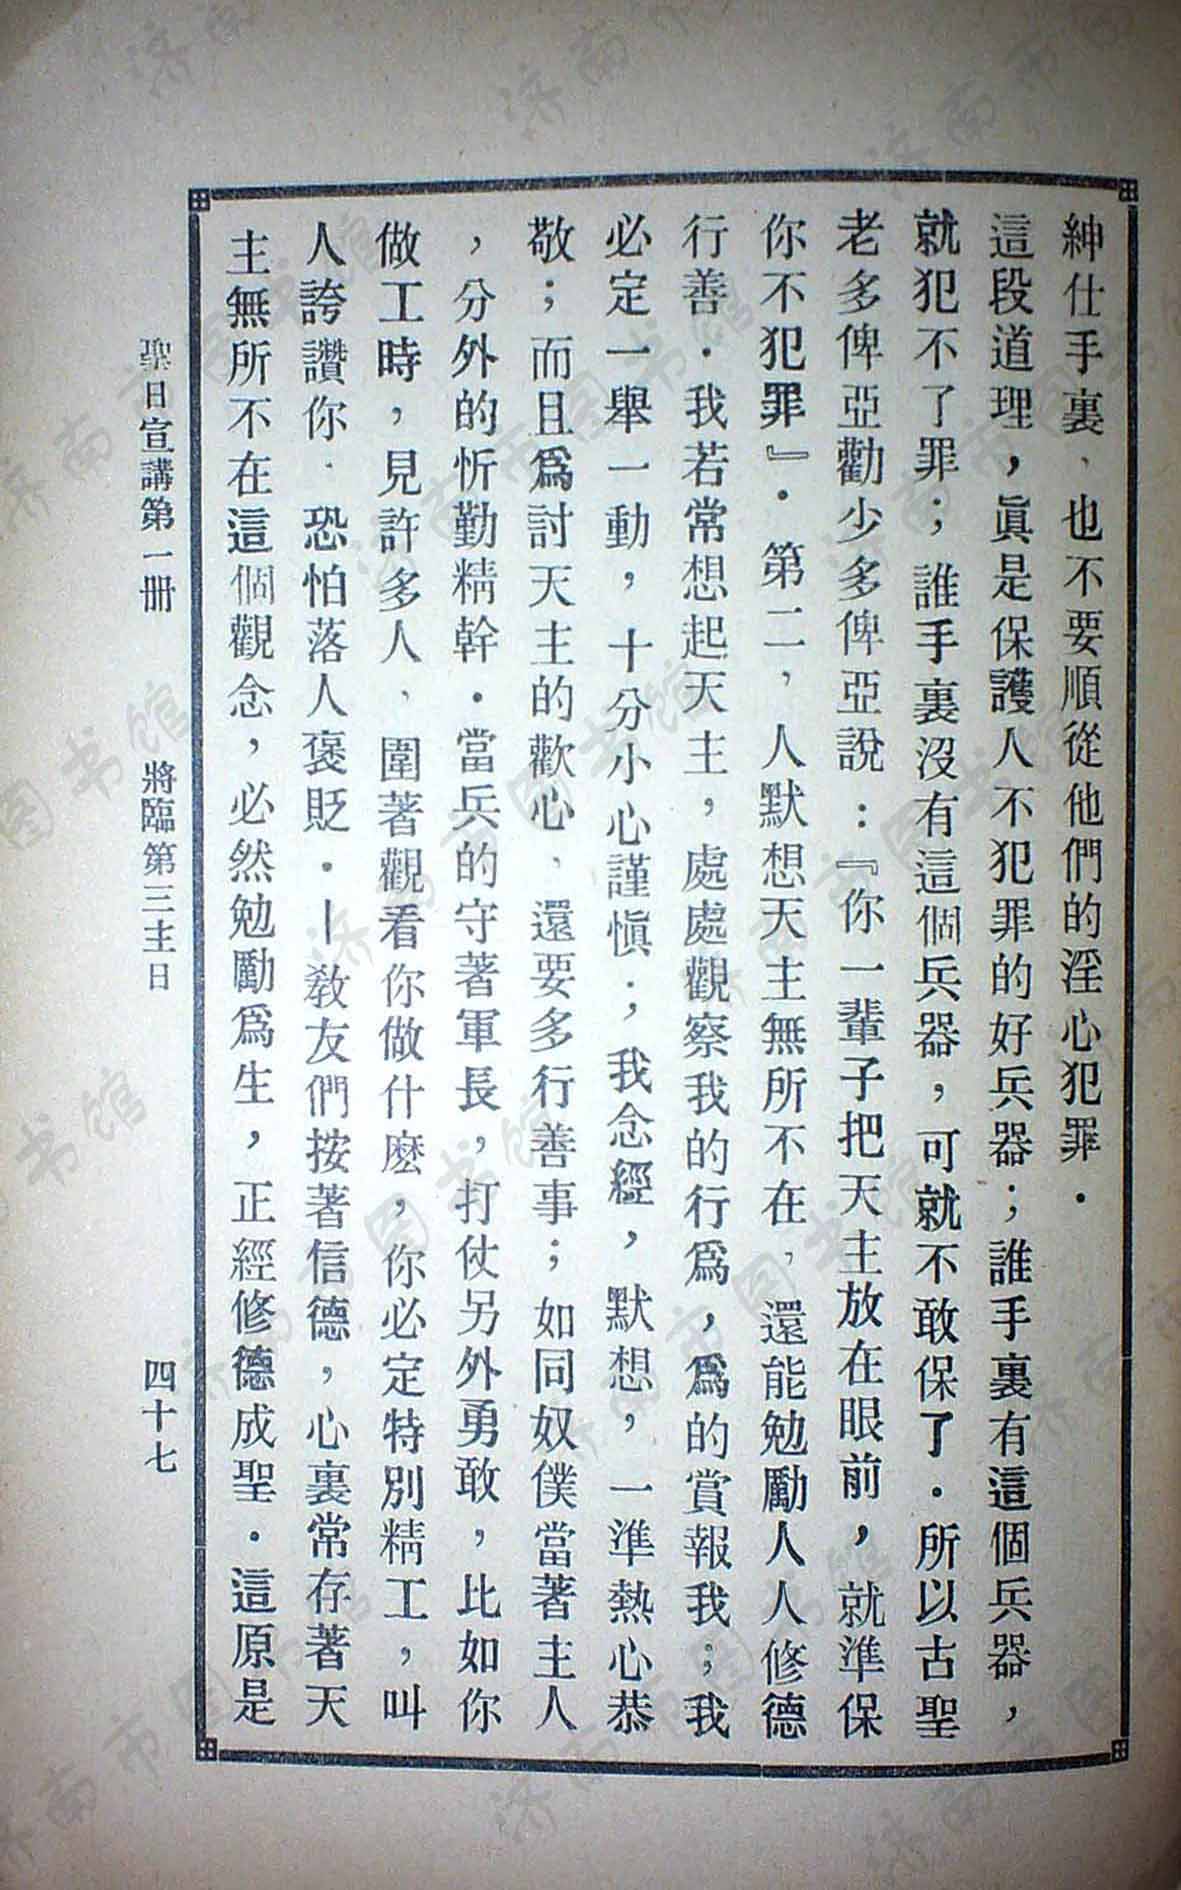 紳仕手裏、也不要順從他們的淫心犯罪．
這段道理，眞是保護人不犯罪的好兵器；誰手裏有這個兵器，
就犯不了罪；誰手裏沒有這個兵器，可就不敢保了．所以古聖
老多俾亞勸少多俾亞說：『你一輩子把天主放在眼前，就準保
你不犯罪』．第二，人默想天主無所不在，還能勉勵人人修德
行善．我若常想起天主，處處觀察我的行爲，爲的賞報我；我
必定一舉一動，十分小心謹愼；我念經，默想，一準熱心恭
敬；而且爲討天主的歡心，還要多行善事；如同奴僕當著主人
，分外的忻勤精幹．當兵的守著軍長，打仗另外勇敢，比如你
做工時，見許多人，圍著觀看你做什麽，你必定特別精工，叫
人誇讚你．恐怕落人褒貶．—敎友們按著信德，心裏常存著天
主無所不在這個觀念，必然勉勵爲生，正經修德成聖．這原是
聖日宣講第一册　將臨第三主日　四十七
济南市图书馆